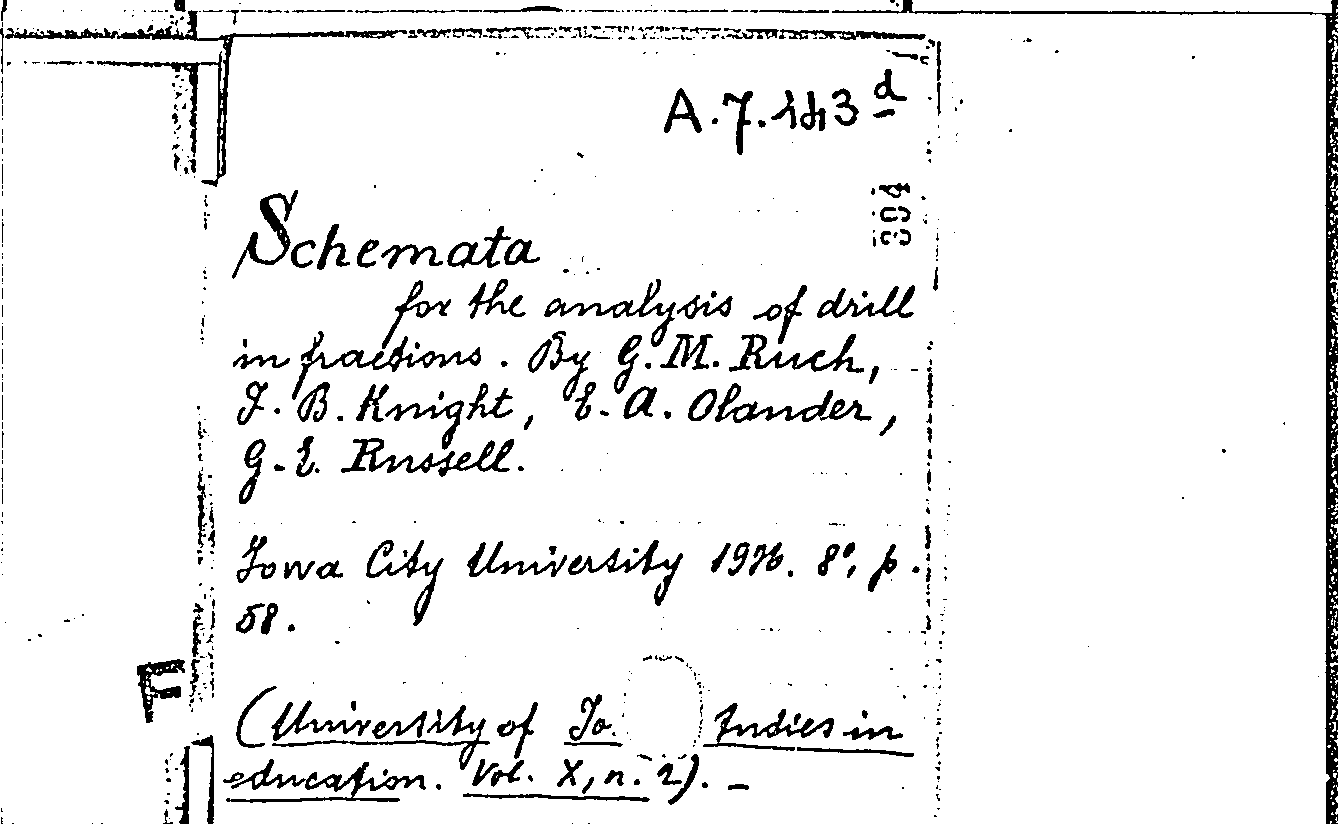 A.7.143 d
394
Schemata
for the analysis of drill
in fractions. By G. M. Ruch,
F. B. Knight, E. A. Olander,
G. E. Russell.
Iowa City University 1926. 8°, p.
58.
(University of Io. Studies in
education. Vol. X, n. 2). –
F